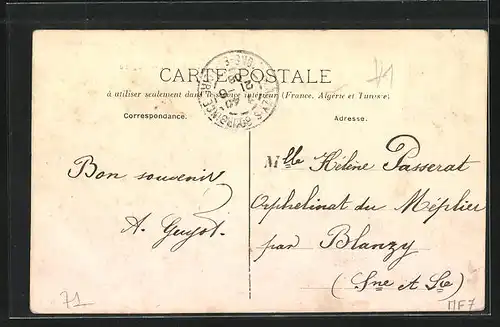 CARTE POSTALE
à utiliser seulement dans le service intérieur (France, Algérie et Tunisie)
Correspondance.
Adresse.
Bon souvenir
A. Guyot.
Mlle Hélène Passerat
Orphelinat du Méplier
par Blanzy
(Sne et Lre)
71
MF7